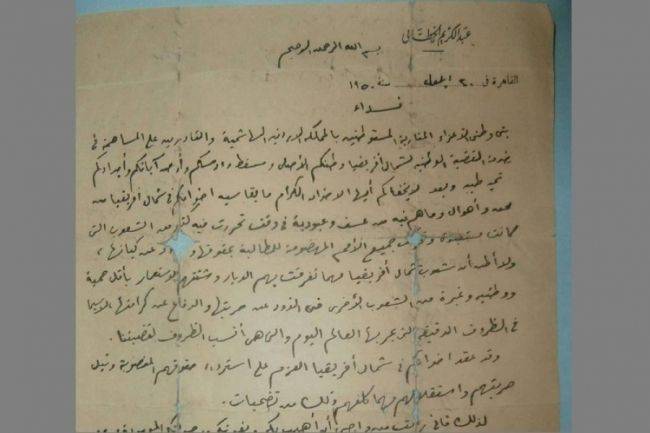 عبد الكريم الخطابي
بسم الله الرحمن الرحيم
القاهرة في ٢٠ سنة ١٩٥٠
نداء
بني وطني الأعزاء المغاربة المستوطنين بالمملكة الأردنية الهاشمية والقادرين على المساهمة في
خدمة القضية الوطنية لشمال أفريقيا وطنكم الأصلي ومسقط رأسكم وأرض آبائكم وأجدادكم
تحية طيبة وبعد لا يخفاكم أيها الاخوان الكرام ما يقاسيه اخوانكم في شمال أفريقيا من
محن وأهوال وما هم فيه من عسف وعبودية في وقت تحررت فيه من الشعوب التي
كانت مستعبدة جميع الأمم المهضومة للمطالبة بحقوقها عن كيانها،
ولا أظن أن شعوب شمال أفريقيا مهما تفرقت بهم الديار وشتتهم الاستعمار بأقل حمية
ووطنية وغيرة من الشعوب الأخرى في الذود عن حريتها والدفاع عن كرامتها لاسيما
في الظروف الدقيقة التي يمر بها العالم اليوم والتي هي أنسب الظروف لقضيتنا.
وقد عقد اخوانكم في شمال أفريقيا العزم على استرداد حقوقهم المغصوبة ونيل
حريتهم واستقلالهم مهما كلفهم ذلك من تضحيات.
لذلك فاني من واجبي أن أهيب بكم